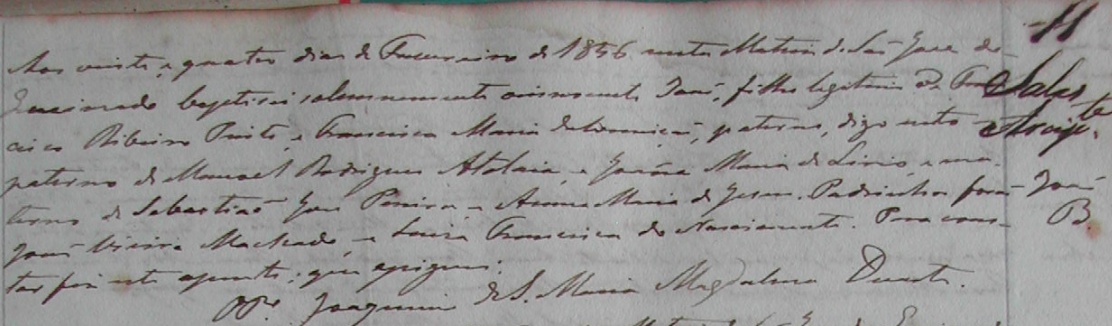 Aos vinte e quatro dias de Fevereiro de 1856 nesta Matriz de São José de
baptisei solemnemente o innocente José, filho legitimo de Fran
cisco Ribeiro Pinto, e Francisca Maria da Conceição, paterno, digo neto
paterno de Manoel Rodrigues Atalaia, e Maria do Livro, e ma-
terno de Sebastião José Pereira, e Anna Maria de Jesus. Padrinhos forão
José Vieira Machado, e Luiza Francisca do Nascimento. Para cons-
tar fiz este assento, que assignei.
Joaquim de S. Maria Magdalena Duarte.
José
B.